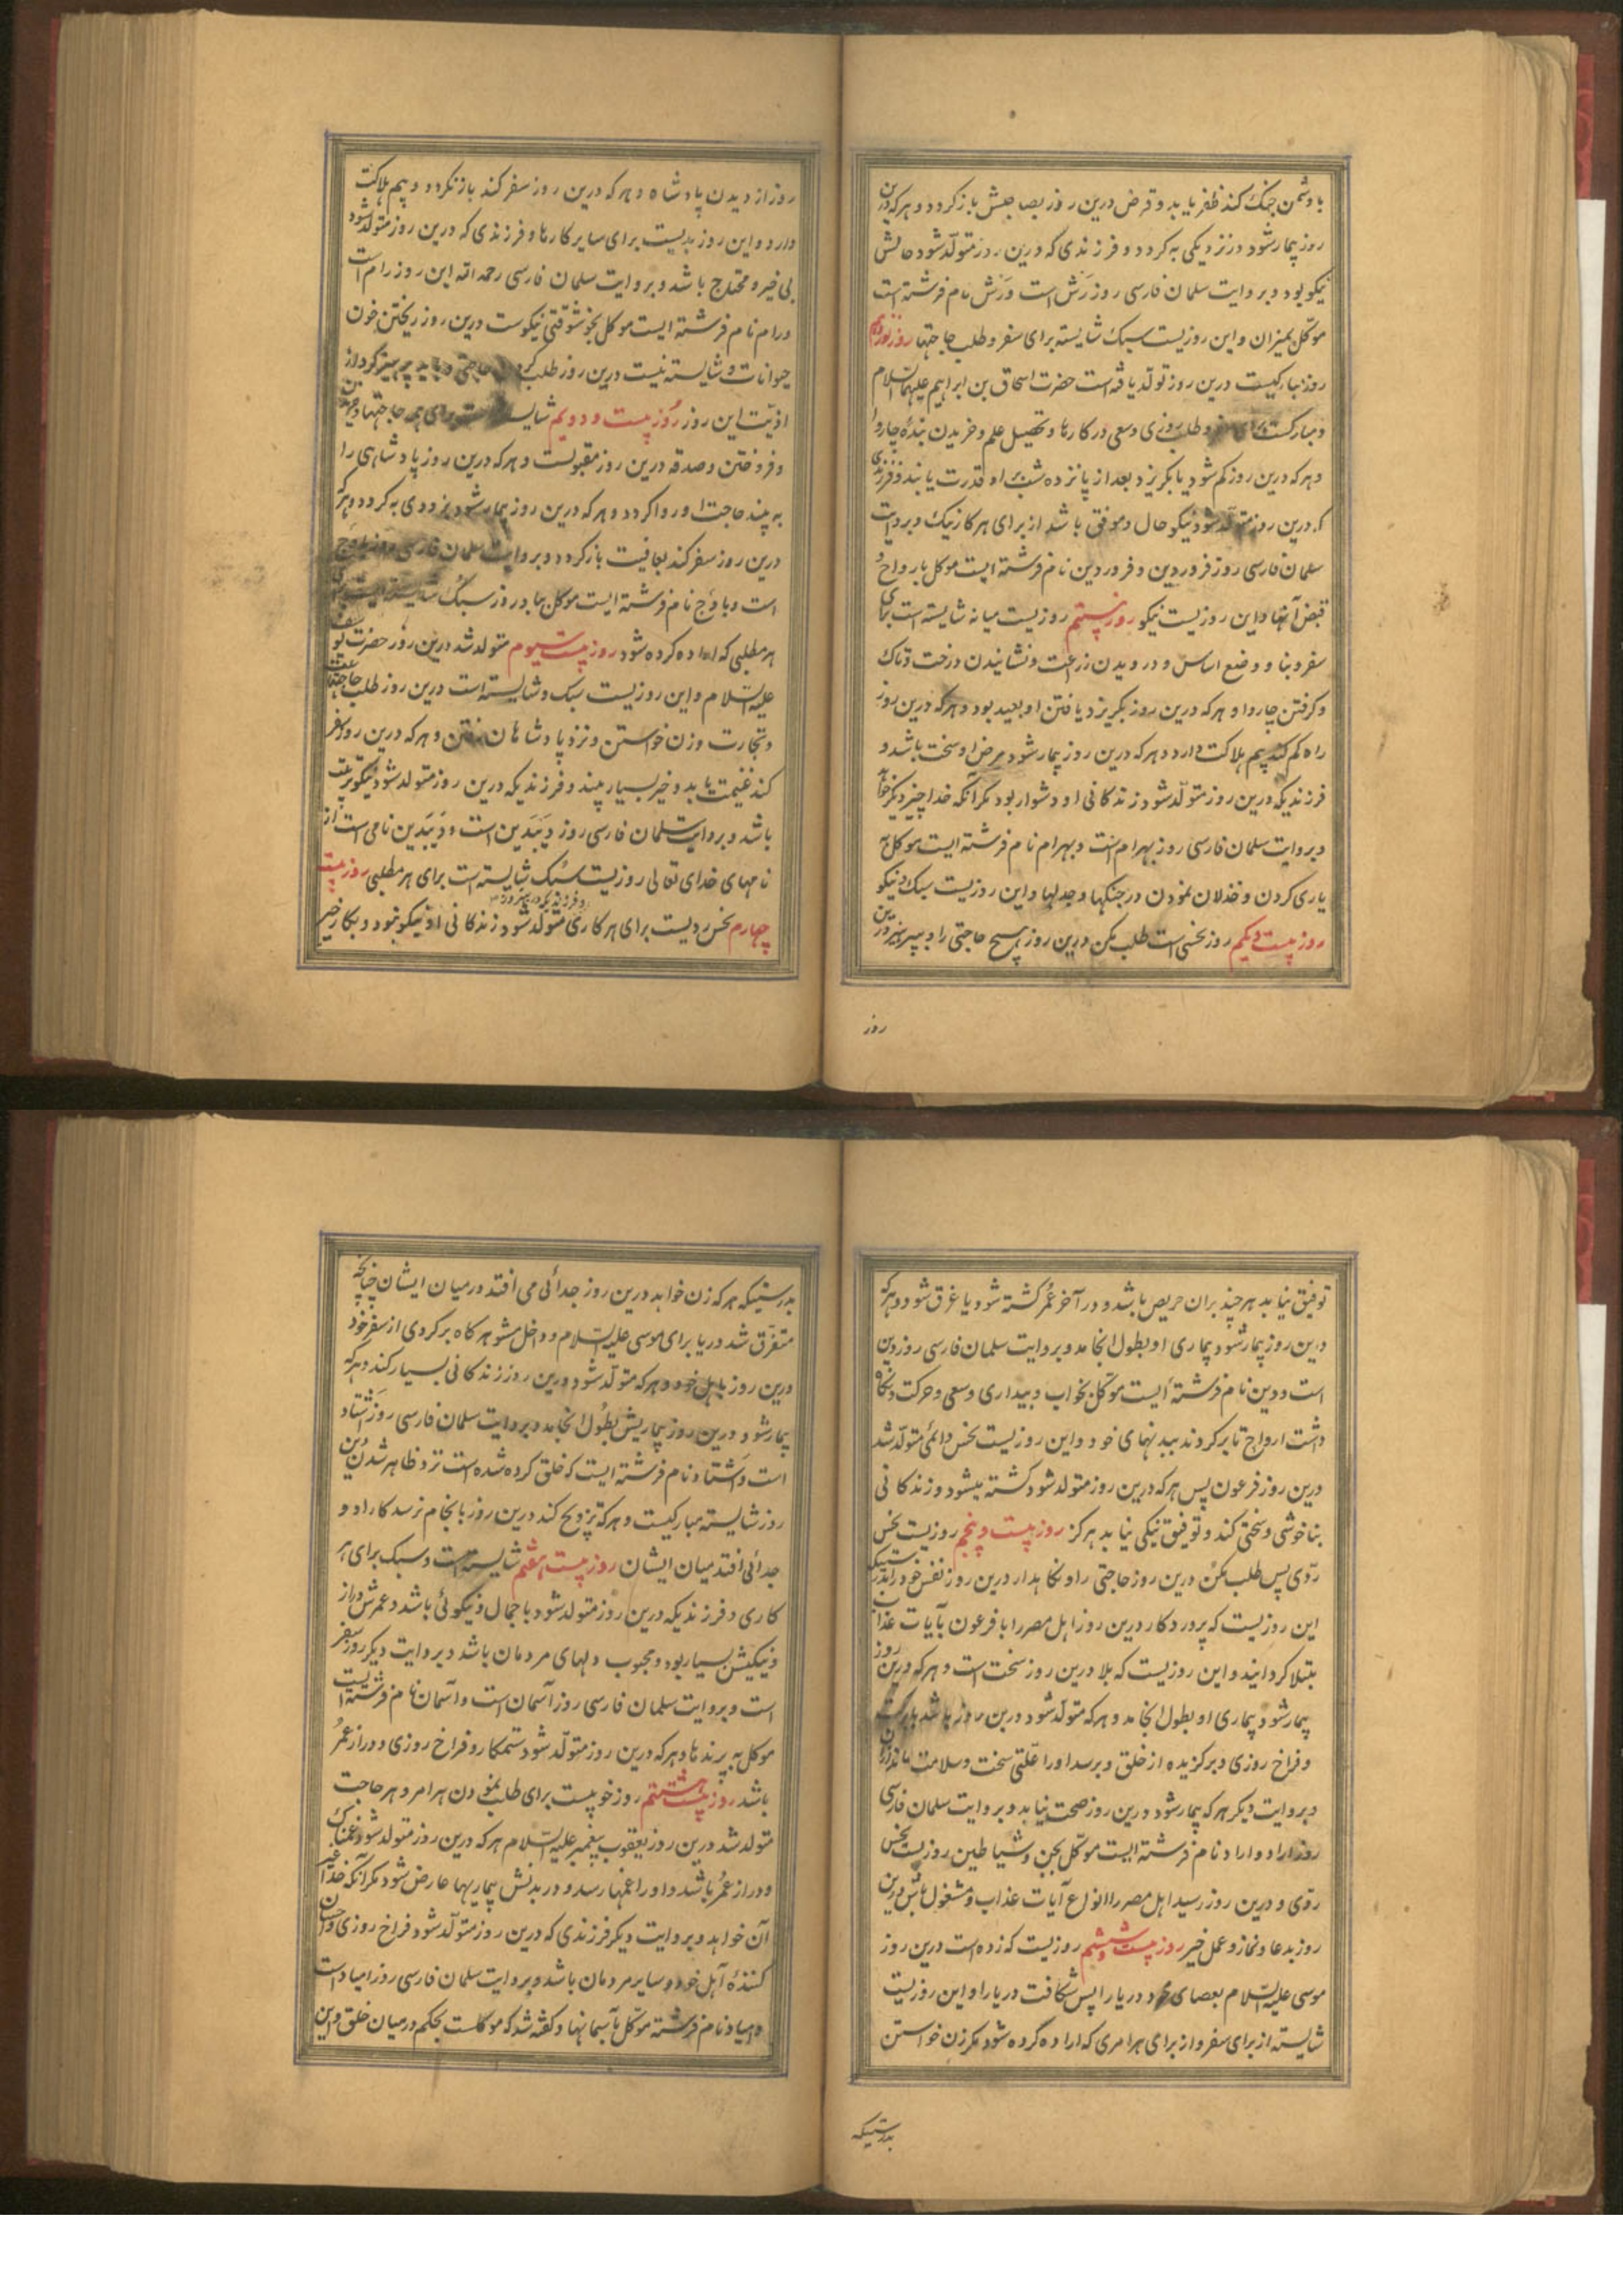 با دشمن جنک کند ظفر یابد و قرض درین روز بصاحبش باز کردد و هرکه درین
روز بیمار شود در نزدیکی به کردد و فرزندی که درین روز متولد شود حالش
نیکو بود و بروایت سلمان فارسی روز رَش است و رَش نام فرشته است
موکل بمیزان و این روزیست سبک شایسته برای سفر و طلب حاجتها روز نوزدهم
روز مبارکیست درین روز تولد یافته است حضرت اسحاق بن ابراهیم علیهما السلام
و مبارکست برای سفر و طلب روزی و سعی در کارها و تحصیل علم و خریدن بنده چاروا
و هرکه درین روز کم شود یا بکریزد بعد از پانزده شب بر او قدرت یابند و فرزندی
که درین روز متولد شود نیکو حال و موفق باشد از برای هر کار نیک و بروایت
سلمان فارسی روز فروردین و فروردین نام فرشته ایست موکل بارواح و
قبض آنها و این روزیست نیکو روز بیستم روزیست میانه شایسته است برای
سفر و بنا و وضع اساس و درویدن زراعت و نشانیدن درخت و تاک
و کرفتن چاروا و هرکه درین روز بکریزد یافتن او بعید بود و هرکه درین روز
راه کم کند بیم هلاکت دارد و هرکه درین روز بیمار شود مرض او سخت باشد و
فرزندیکه درین روز متولد شود زندکانی او دشوار بود مکر آنکه خدا چیز دیکر خواهد
و بروایت سلمان فارسی روز بهرام است و بهرام نام فرشته ایست موکل به
یاری کردن و خذلان نمودن در جنکها و جدلها و این روزیست سبک و نیکو
روز بیست و یکم روز نحسی است طلب مکن درین روز هیچ حاجتی را و بپرهیز درین
روز
روز از دیدن پادشاه و هرکه درین روز سفر کند باز نکردد و بیم هلاکت
دارد و این روز بدیست برای سایر کارها و فرزندی که درین روز متولد شود
بی خیر و محتاج باشد و بروایت سلمان فارسی رحمه الله این روز رام است
و رام نام فرشته ایست موکل بخوشوقتی نیکوست درین روز ریختن خون
حیوانات و شایسته نیست درین روز طلب کردن حاجتی و باید پرهیز کرد از
اذیت این روز روز بیست و دویم شایسته است برای هر حاجتها و خریدن
و فروختن و صدقه درین روز مقبولست و هرکه درین روز پادشاهی را
به بیند حاجت او روا کردد و هرکه درین روز بیمار شود بزودی به کردد و هرکه
درین روز سفر کند بعافیت باز کردد و بروایت سلمان فارسی روز بادرج
است و بادرج نام فرشته ایست موکل بباد روز سبک شایسته ایست برای
هر مطلبی که اراده کرده شود روز بیست سیوم متولد شد درین روز حضرت یوسف
علیه السلام و این روزیست سبک و شایسته است درین روز طلب حاجتها
و تجارت و زن خواستن و نزد پادشاهان رفتن و هرکه درین روز سفر
کند غنیمت یابد و خیر بسیار بیند و فرزندیکه درین روز متولد شود نیکو تربیت
باشد و بروایت سلمان فارسی روز دَیبَدین است و دَیبَدین نامی است از
نامهای خدای تعالی روزیست سبک شایسته است برای هر مطلبی روز بیست
و فرزندیکه درین روز
چهارم نحس ردیست برای هر کاری متولد شود زندکانی او نیکو نبود و بکار خیر
توفیق نیابد هر چند بران حریص باشد و در آخر عُمر کشته شود یا غرق شود و هرکه
درین روز بیمار شود بیماری او بطول انجامد و بروایت سلمان فارسی روز دین
است و دین نام فرشته ایست موکل بخواب و بیداری و سعی و حرکت و نکاه
داشت ارواح تا بر کردند ببدنهای خود و این روزیست نحس دائمی متولد شد
درین روز فرعون پس هرکه درین روز متولد شود کشته میشود و زندکانی
بناخوشی و سختی کند و توفیق نیکی نیابد هرکز روز بیست و پنجم روزیست نحس
ردّی پس طلب مکن درین روز حاجتی را و نکاهدار درین روز نفس خود را بدرستیکه
این روزیست که پروردکار درین روز اهل مصر را با فرعون بآیات عذاب
مبتلا کردانید و این روزیست که بلا درین روز سخت است و هرکه درین روز
بیمار شود بیماری او بطول انجامد و هرکه متولد شود درین روز باشد با برکت
و فراخ روزی و برکزیده از خلق و برسد او را علتی سخت و سلامت ماند از آن
و بروایت دیکر هرکه بیمار شود درین روز صحت نیابد و بروایت سلمان فارسی
روز اراد و اراد نام فرشته ایست موکل بجن و شیاطین روزیست نحس
ردّی و درین روز رسید اهل مصر را انواع آیات عذاب و مشغول باش درین
روز بدعا و نماز و عمل خیر روز بیست و ششم روزیست که زده است درین روز
موسی علیه السلام بعصای خود دریا را پس شکافت دریا را و این روزیست
شایسته از برای سفر و از برای هر امری که اراده کرده شود مکر زن خواستن
بدرستیکه
بدرستیکه هر که زن خواهد درین روز جدائی می افتد درمیان ایشان چنانچه
متفرّق شد دریا برای موسی علیه السلام و داخل مشو هر کاه بر کردی از سفر خود
درین روز باهل خود و هرکه متولد شود درین روز زندکانی بسیار کند و هرکه
بیمار شود درین روز بیماریش بطُول انجامد و بروایت سلمان فارسی روز اَشتاد
است و اَشتاد نام فرشته ایست که خلق کرده شده است نزد ظاهر شدن دین
روز شایسته مبارکیست و هرکه تزویج کند درین روز بانجام نرسد کار او و
جدائی افتد میان ایشان روز بیست هفتم شایسته است و سبک برای هر
کاری و فرزندیکه درین روز متولد شود با جمال و نیکوئی باشد و عمرش دراز
و نیکیش بسیار بود و محبوب دلهای مردمان باشد و بروایت دیکر روز سفر
است و بروایت سلمان فارسی روز آسمان است و آسمان نام فرشته ایست
موکل به پرندها و هرکه درین روز متولد شود ستمکار و فراخ روزی و دراز عمُر
باشد روز بیست هشتم روز خوبیست برای طلب نمودن هر امر و هر حاجت
متولد شد درین روز یعقوب پیغمبر علیه السلام هرکه درین روز متولد شود غمناک
و دراز عمُر باشد و او را غمها رسد و در بدنش بیماریها عارض شود مکر آنکه خدا غیر
آن خواهد و بروایت دیکر فرزندی که درین روز متولد شود فراخ روزی و احسان
کنندهٔ اهل خود و سایر مردمان باشد و بروایت سلمان فارسی روز رامیاد است
و امیاد نام فرشته موکل بآسمانها و کفته شد که موکلست بحکم درمیان خلق و این